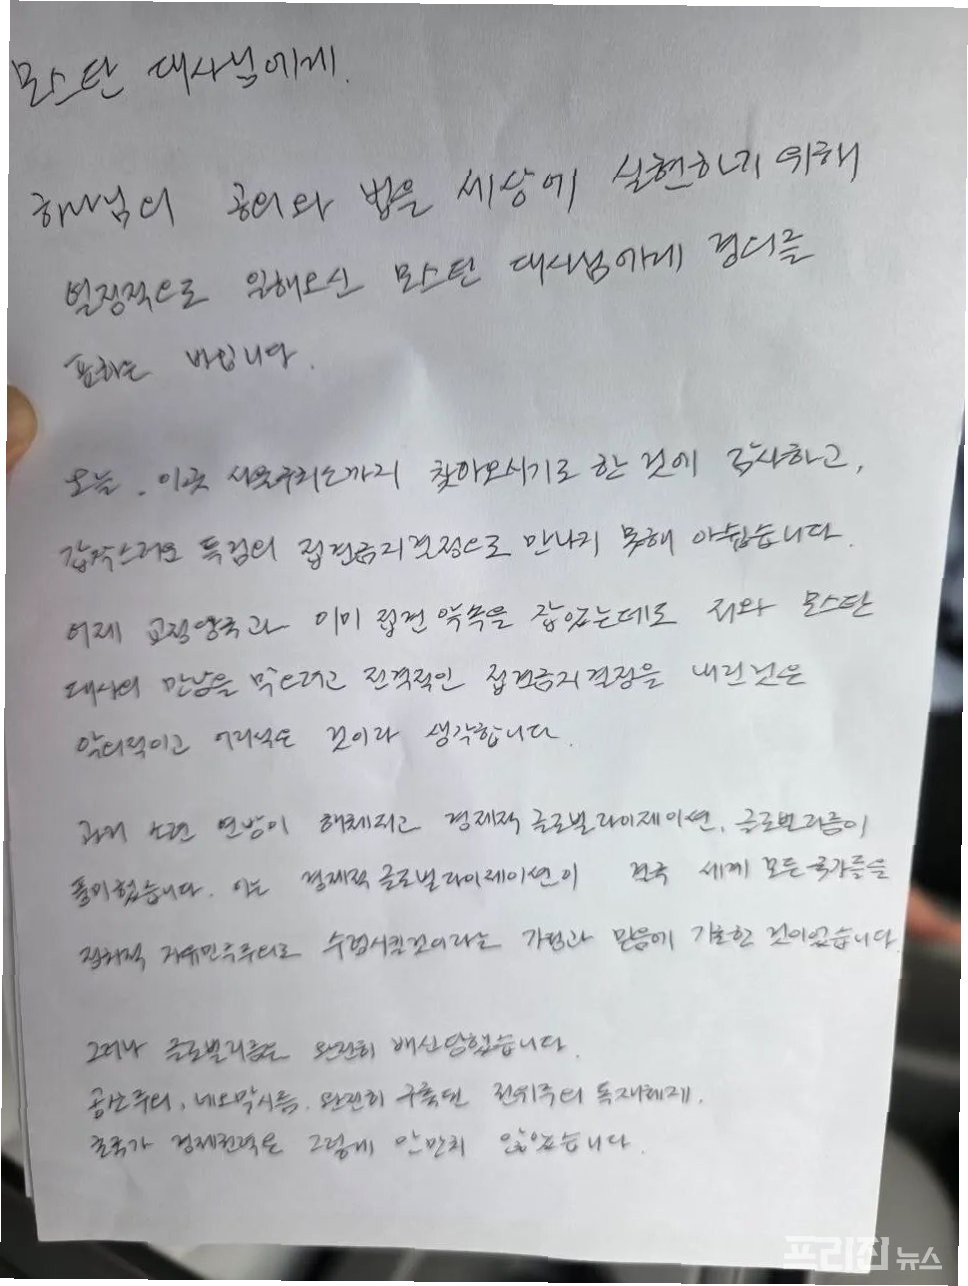 모스탄 대사님에게.
하나님의 공의와 법을 세상에 실현하기 위해
열정적으로 일해오신 모스탄 대사님에게 경의를
표하는 바입니다.
오늘. 이곳 서울구치소까지 찾아오시기로 한 것에 감사하고,
갑작스러운 특검의 접견금지결정으로 만나지 못해 아쉽습니다.
어제 교정당국과 이미 접견 약속을 잡았는데도 저와 모스탄
대사의 만남을 막으려고 전격적인 접견금지결정을 내린것은
악의적이고 어리석은 것이라 생각합니다.
과거 소련 연방이 해체되고 경제적 글로벌라이제이션, 글로벌리즘이
풍미했습니다. 이는 경제적 글로벌라이제이션이 결국 세계 모든 국가들을
정치적 자유민주주의로 수렴시킬것이라는 가정과 믿음에 기초한 것이었습니다.
그러나 글로벌리즘은 완전히 배신당했습니다.
공산주의, 네오막시즘, 완전히 구축된 전위주의 독재체제,
초국가 경제권력은 그렇게 만만치 않았습니다.
프리진 뉴스